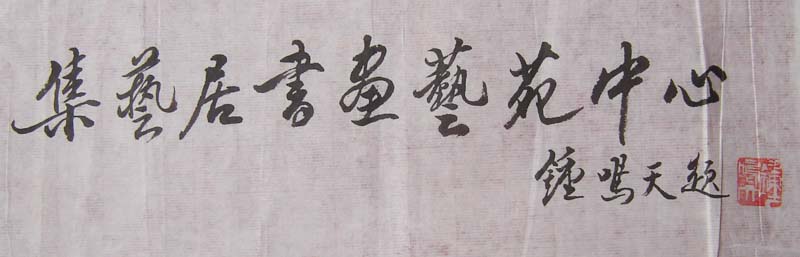 集藝居書畫藝苑中心
鍾鳴天題